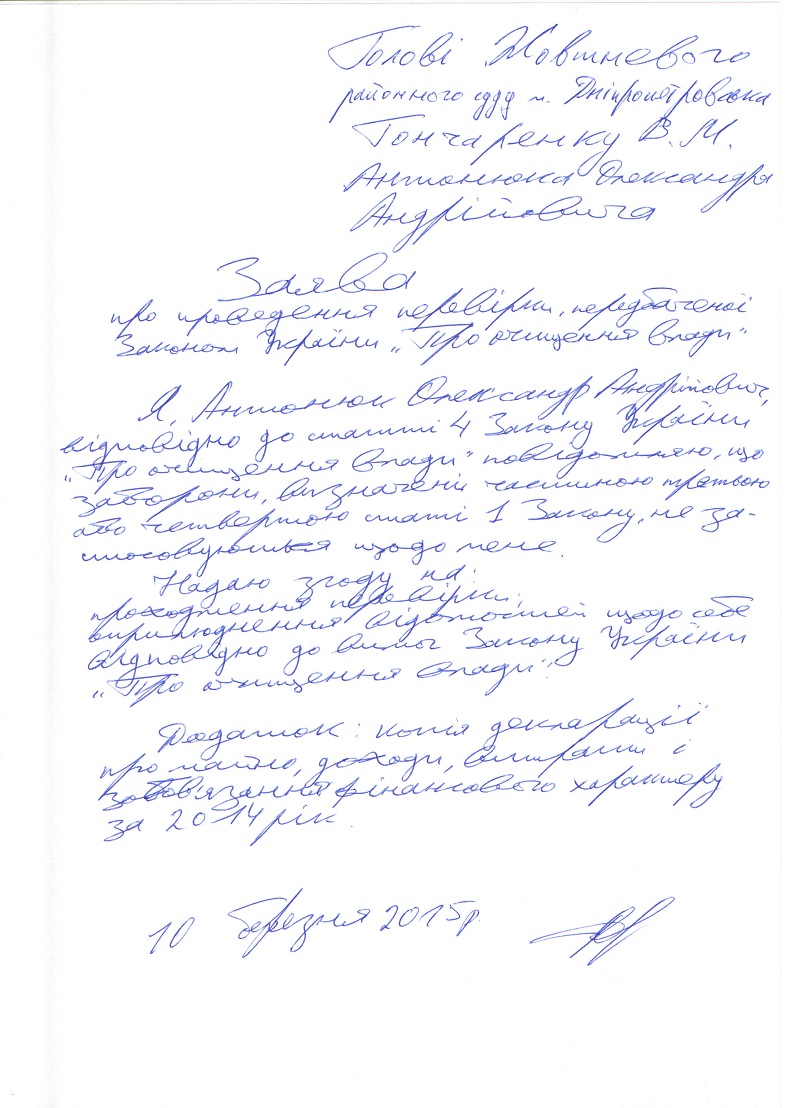 Голові Жовтневого
районного суду м. Дніпропетровська
Гончаренку В. М.
Антонюка Олександра
Андрійовича
Заява
про проведення перевірки, передбаченої
Законом України „Про очищення влади"
Я, Антонюк Олександр Андрійович,
відповідно до статті 4 Закону України
„Про очищення влади" повідомляю, що
заборони, визначені частиною третьою
або четвертою статі 1 Закону, не за-
стосовуються щодо мене.
Надаю згоду на:
проходження перевірки;
оприлюднення відомостей щодо себе
відповідно до вимог Закону України
„Про очищення влади".
Додаток: копія декларації
про майно, доходи, витрати і
зобов'язання фінансового характеру
за 2014 рік.
10 березня 2015р.